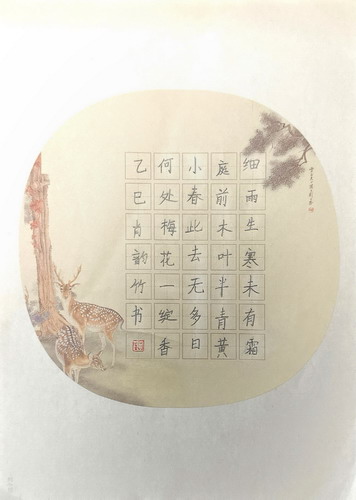 细雨生寒未有霜
庭前木叶半青黄
小春此去无多日
何处梅花一绽香
乙巳肖韵竹书